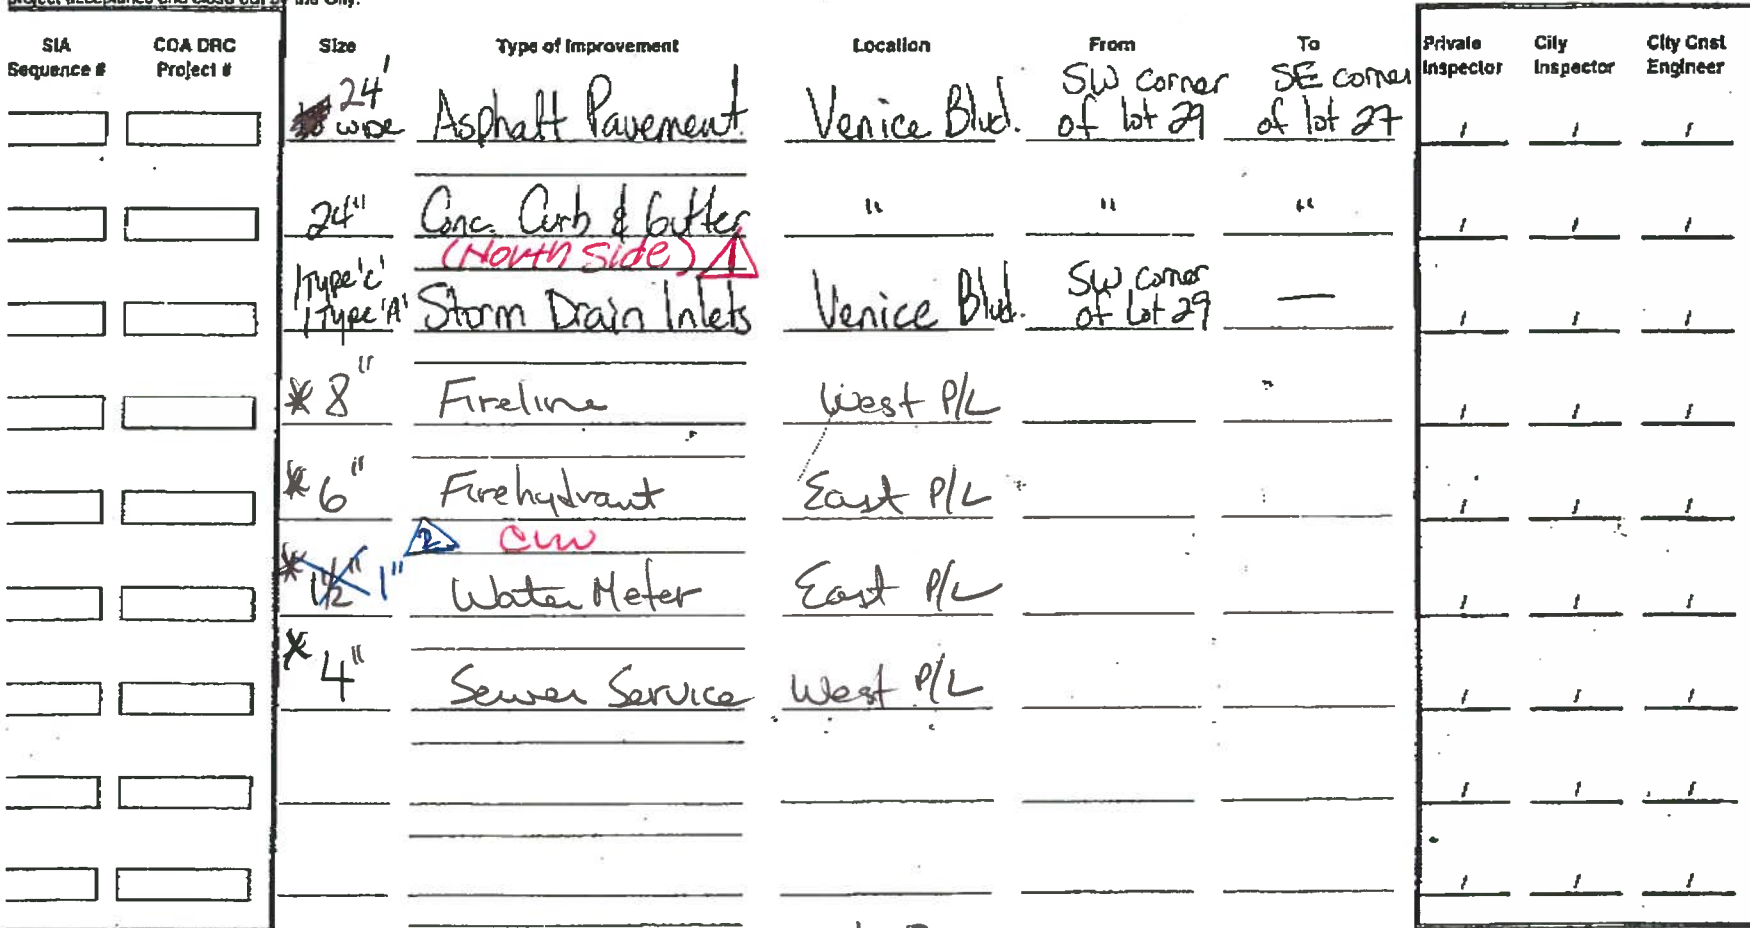 project acceptance and close-out by the City.
SIA Sequence # COA DRC Project # Size Type of Improvement Location From To Private Inspector City Inspector City Cnst Engineer
24' wide Asphalt Pavement Venice Blvd. SW corner of lot 29 SE corner of lot 27 / / /
24" Conc. Curb & Gutter " " " / / /
(North Side) 1
1 Type 'C' 1 Type 'A' Storm Drain Inlets Venice Blvd. SW corner of Lot 29 — / / /
* 8" Fireline West P/L / / /
* 6" Firehydrant East P/L / / /
2
* 1 1/2" 1" Water Meter East P/L / / /
* 4" Sewer Service West P/L / / /
/ / /
/ / /